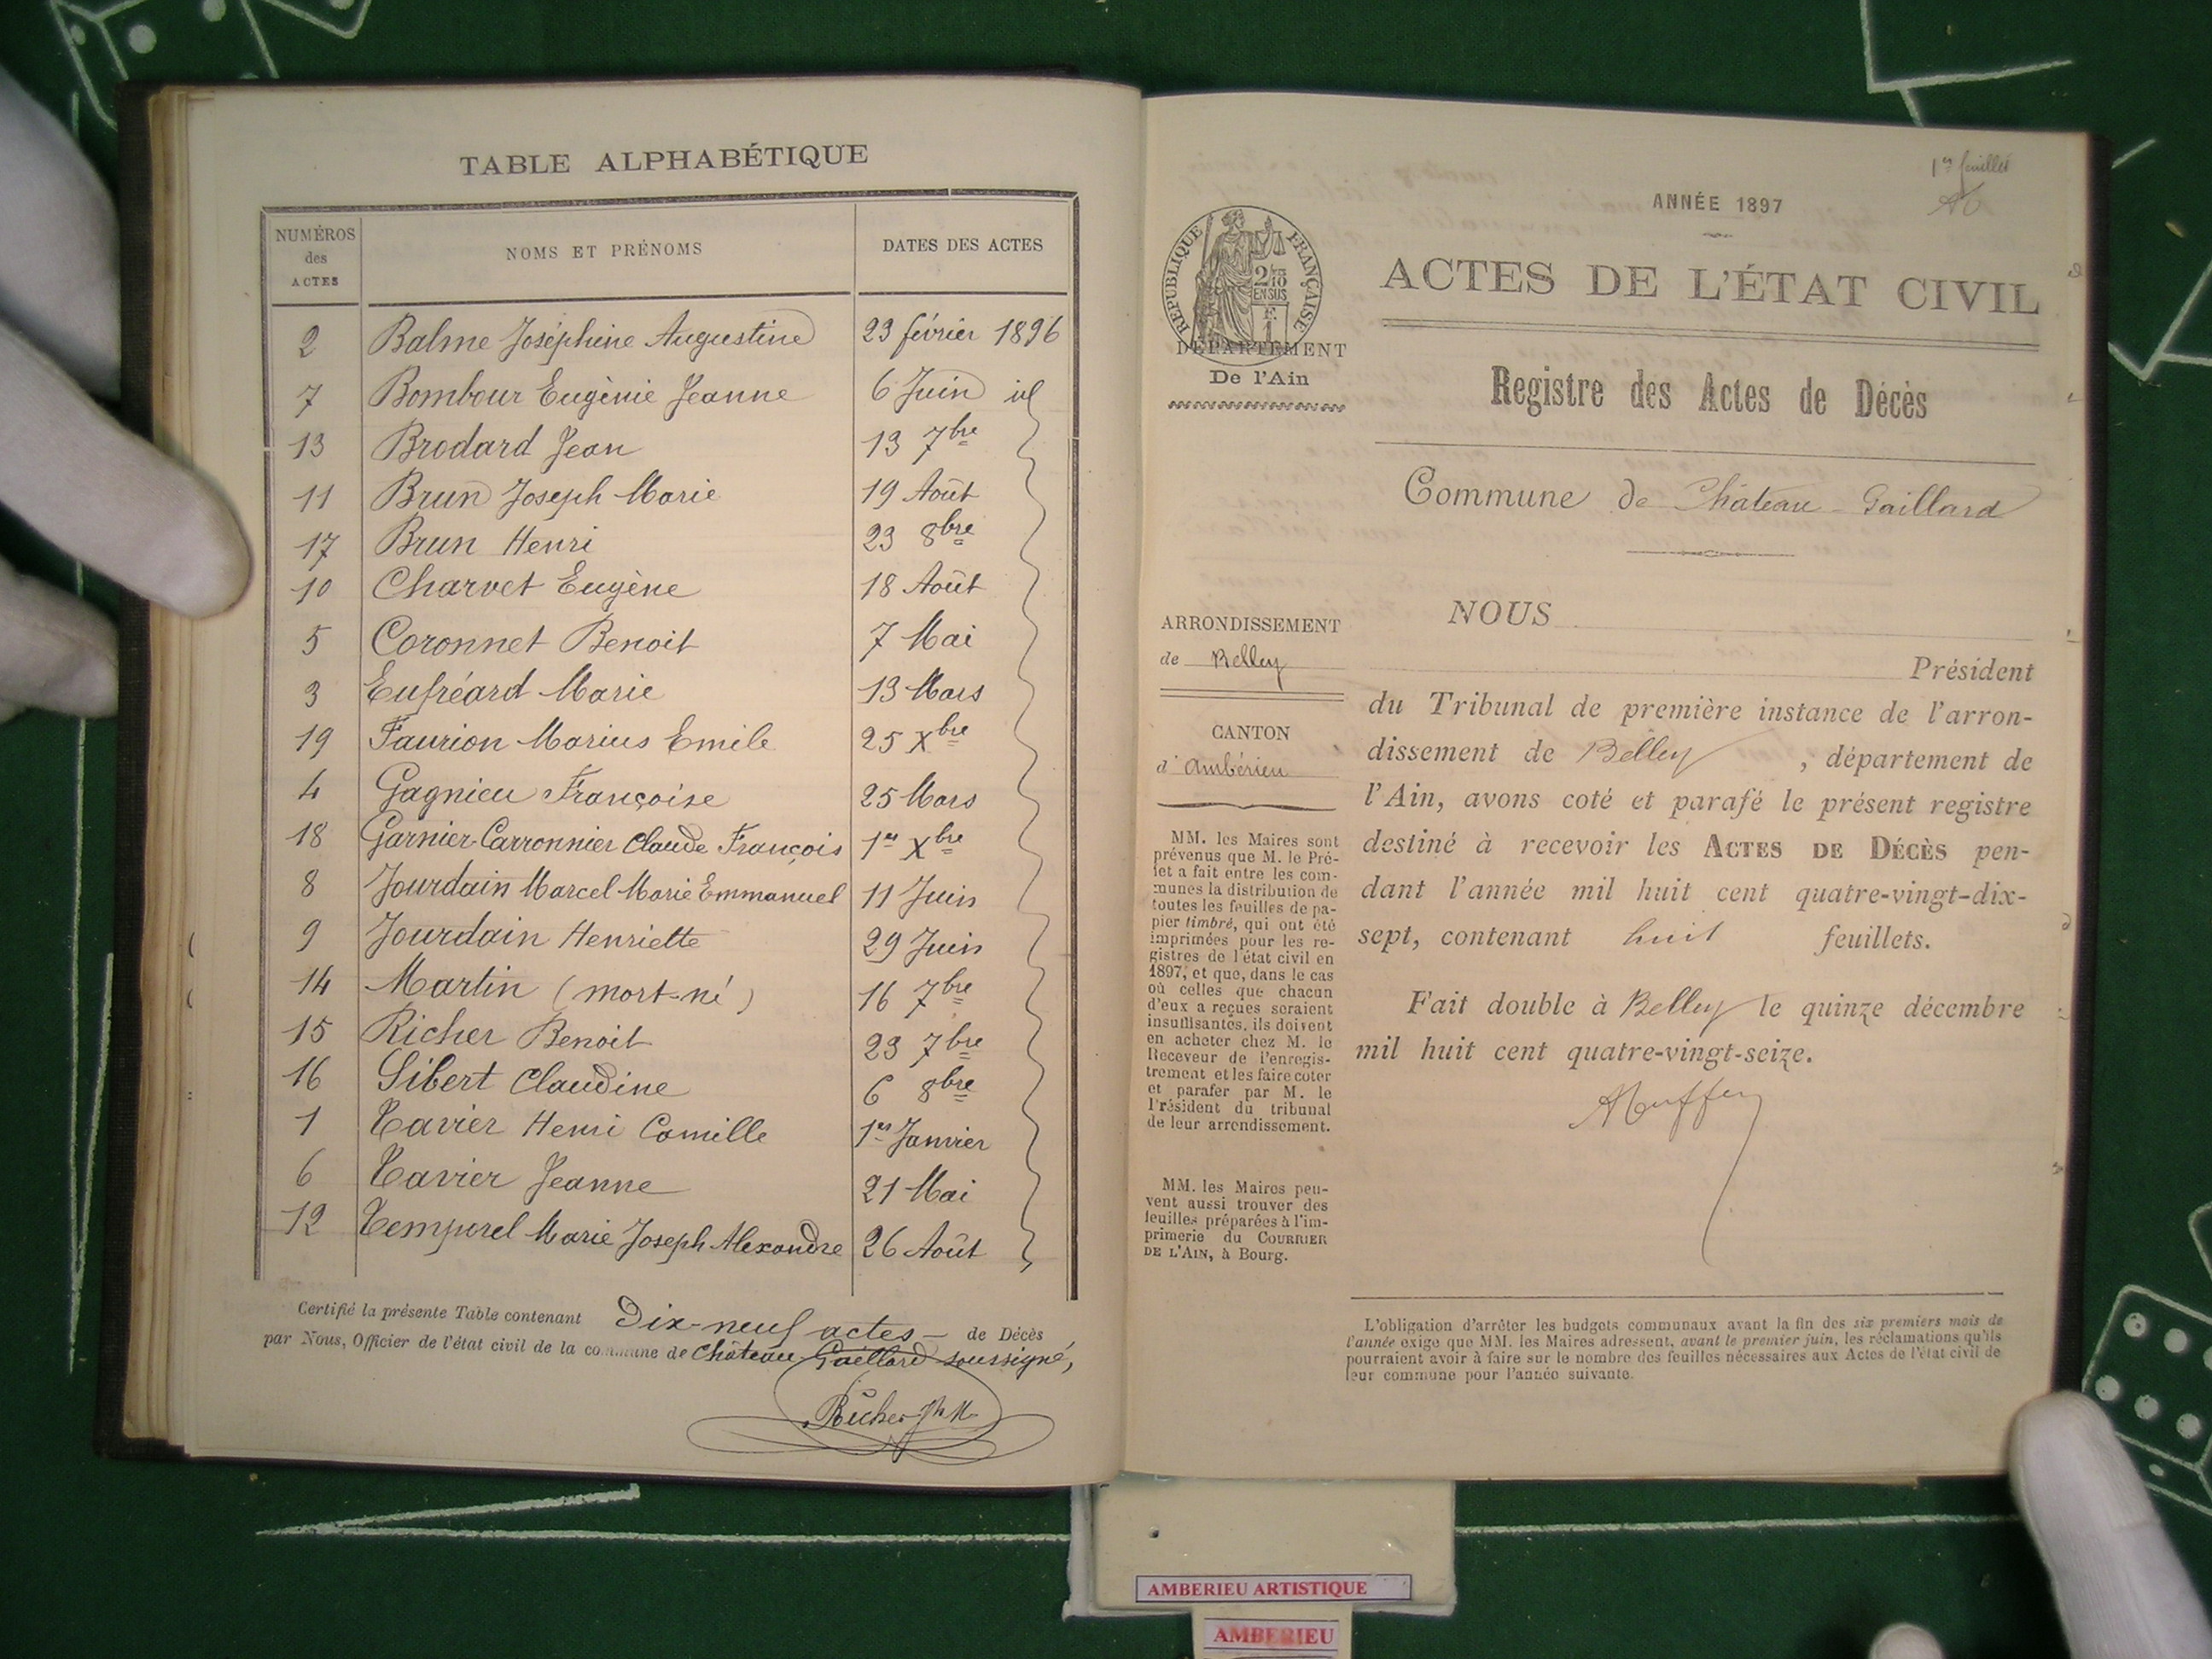 TABLE ALPHABÉTIQUE
NUMÉROS des ACTES NOMS ET PRÉNOMS DATES DES ACTES
2 Balme Joséphine Augustine 23 février 1896
7 Bombour Eugènie Jeanne 6 Juin id
13 Brodard Jean 13 7bre
11 Brun Joseph Marie 19 Août
17 Brun Henri 23 8bre
10 Charvet Eugène 18 Août
5 Coronnet Benoit 7 Mai
3 Eufréard Marie 13 Mars
19 Faurion Marius Emile 25 Xbre
4 Gagnieu Françoise 25 Mars
18 Garnier-Carronnier Claude François 1er Xbre
8 Jourdain Marcel Marie Emmanuel 11 Juin
9 Jourdain Henriette 29 Juin
14 Martin (mort-né) 16 7bre
15 Richer Benoit 23 7bre
16 Sibert Claudine 6 8bre
1 Tavier Henri Camille 1er Janvier
6 Tavier Jeanne 21 Mai
12 Temporel Marie Joseph Alexandre 26 Août
Certifié la présente Table contenant Dix-neuf actes — de Décès
par Nous, Officier de l'état civil de la commune de Château-Gaillard soussigné,
Richer
1er feuillet
ANNÉE 1897
RÉPUBLIQUE FRANÇAISE
2/10
EN SUS
F.
1
DÉPARTEMENT
De l'Ain
ACTES DE L'ÉTAT CIVIL
Registre des Actes de Décès
Commune de Château-Gaillard
ARRONDISSEMENT
de Belley
CANTON
d'Ambérieu
MM. les Maires sont
prévenus que M. le Pré-
fet a fait entre les com-
munes la distribution de
toutes les feuilles de pa-
pier timbré, qui ont été
imprimées pour les re-
gistres de l'état civil en
1897, et que, dans le cas
où celles que chacun
d'eux a reçues seraient
insuffisantes, ils doivent
en acheter chez M. le
Receveur de l'enregis-
trement et les faire coter
et parafer par M. le
Président du tribunal
de leur arrondissement.
MM. les Maires peu-
vent aussi trouver des
feuilles préparées à l'im-
primerie du COURRIER
DE L'AIN, à Bourg.
NOUS
Président
du Tribunal de première instance de l'arron-
dissement de Belley, département de
l'Ain, avons coté et parafé le présent registre
destiné à recevoir les ACTES DE DÉCÈS pen-
dant l'année mil huit cent quatre-vingt-dix-
sept, contenant huit feuillets.
Fait double à Belley le quinze décembre
mil huit cent quatre-vingt-seize.
L'obligation d'arrêter les budgets communaux avant la fin des six premiers mois de
l'année exige que MM. les Maires adressent, avant le premier juin, les réclamations qu'ils
pourraient avoir à faire sur le nombre des feuilles nécessaires aux Actes de l'état civil de
leur commune pour l'année suivante.
AMBERIEU ARTISTIQUE
AMBERIEU